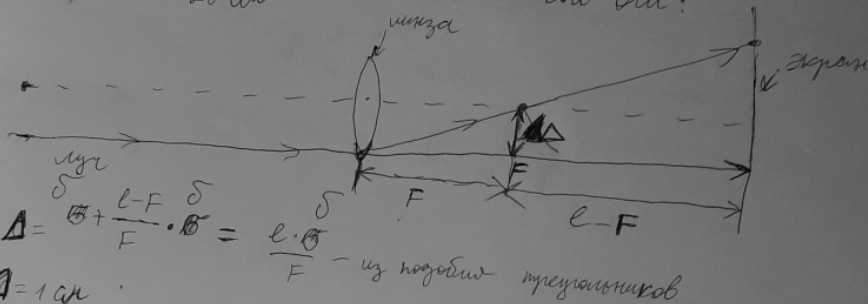 линза
экран
луч
Δ
F
F
l-F
Δ = δ + (l-F)/F · δ = (l·δ)/F - из подобия треугольников
= 1 см